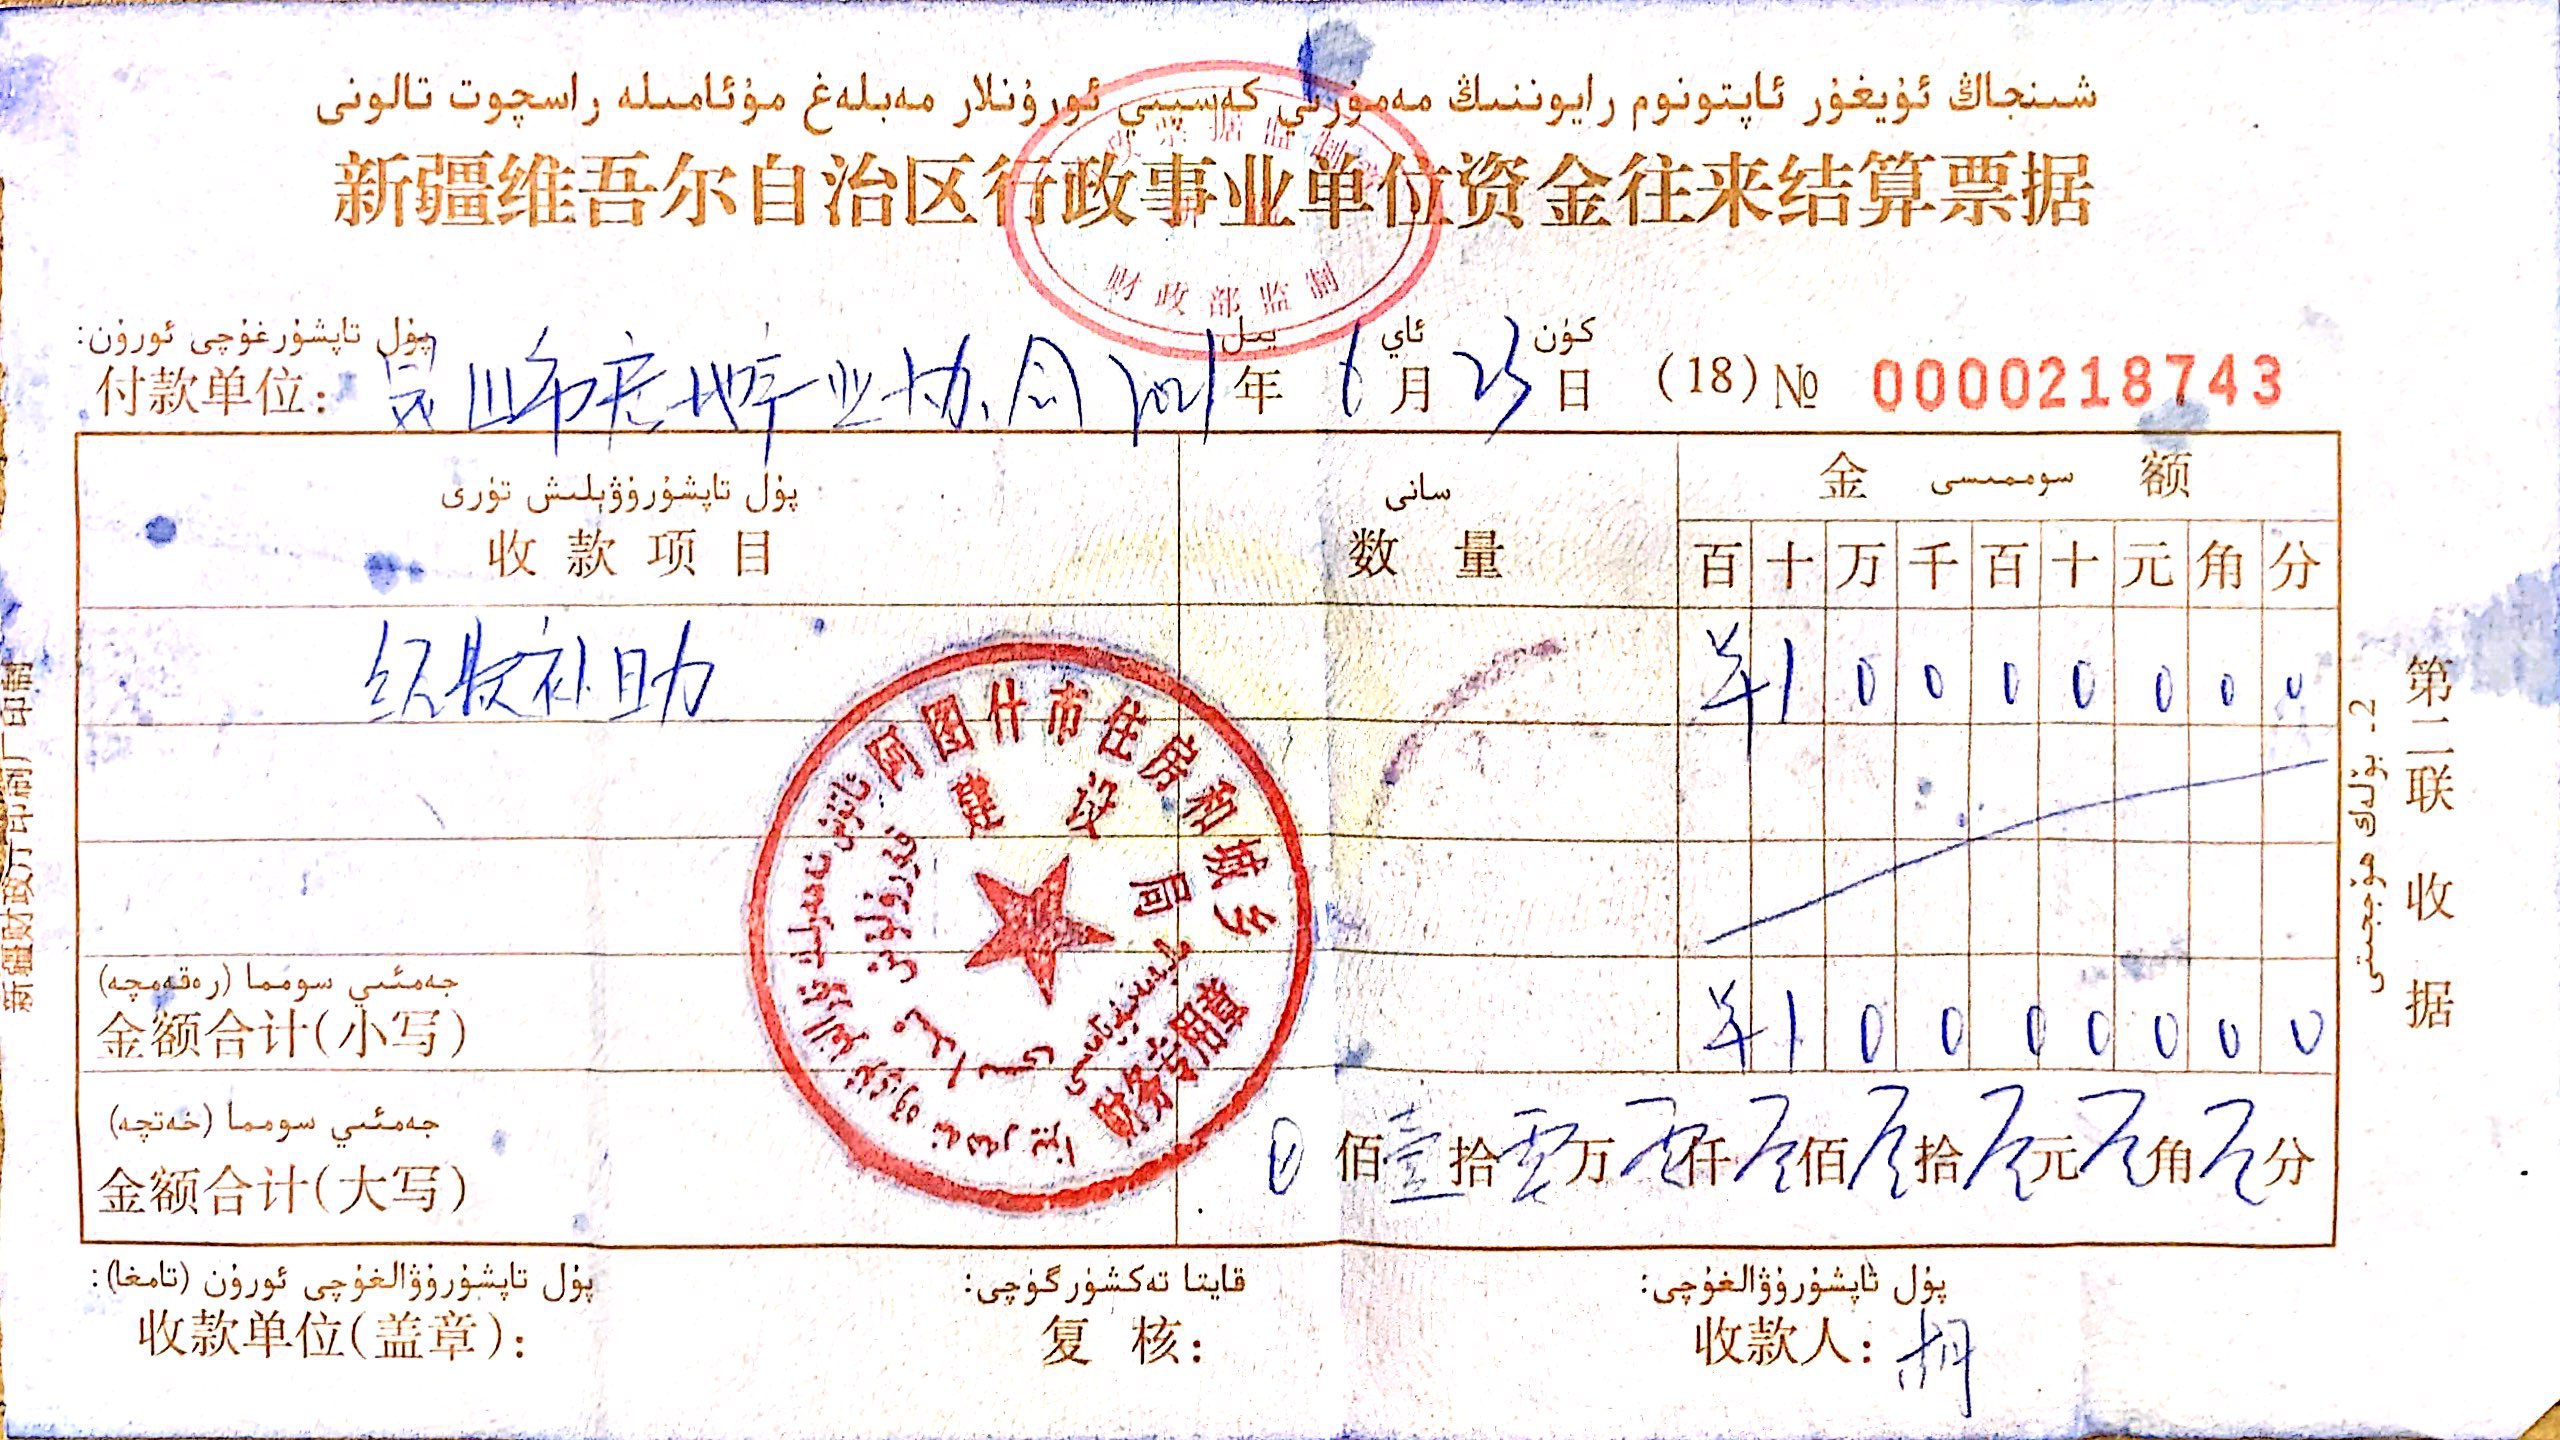 شىنجاڭ ئۇيغۇر ئاپتونوم رايونىنىڭ مەمۇرىي كەسپىي ئورۇنلار مەبلەغ مۇئامىلە راسچوت تالونى
新疆维吾尔自治区行政事业单位资金往来结算票据
财政部监制
پۇل تاپشۇرغۇچى ئورۇن: يىل ئاي كۈن
付款单位: 昆山市房地产业协会 2021年 6月 23日 (18) № 0000218743
پۇل تاپشۇرۇۋېلىش تۈرى سانى 金 سوممىسى 额
收款项目 数量 百 十 万 千 百 十 元 角 分
补助 ¥ 1 0 0 0 0 0 0 0
جەمئىي سومما (رەقەمچە)
金额合计(小写) ¥ 1 0 0 0 0 0 0 0
جەمئىي سومما (خەتچە)
金额合计(大写) 佰 壹 拾 零 万 零 仟 零 佰 零 拾 零 元 零 角 零 分
阿图什市住房和城乡
建设局
财务专用章
پۇل تاپشۇرۇۋالغۇچى ئورۇن (تامغا): قايتا تەكشۈرگۈچى: پۇل تاپشۇرۇۋالغۇچى:
收款单位(盖章): 复核: 收款人: 胡
第二联 收据
2- بۆلەك ھۆججىتى
新疆财政厅印制厂印制